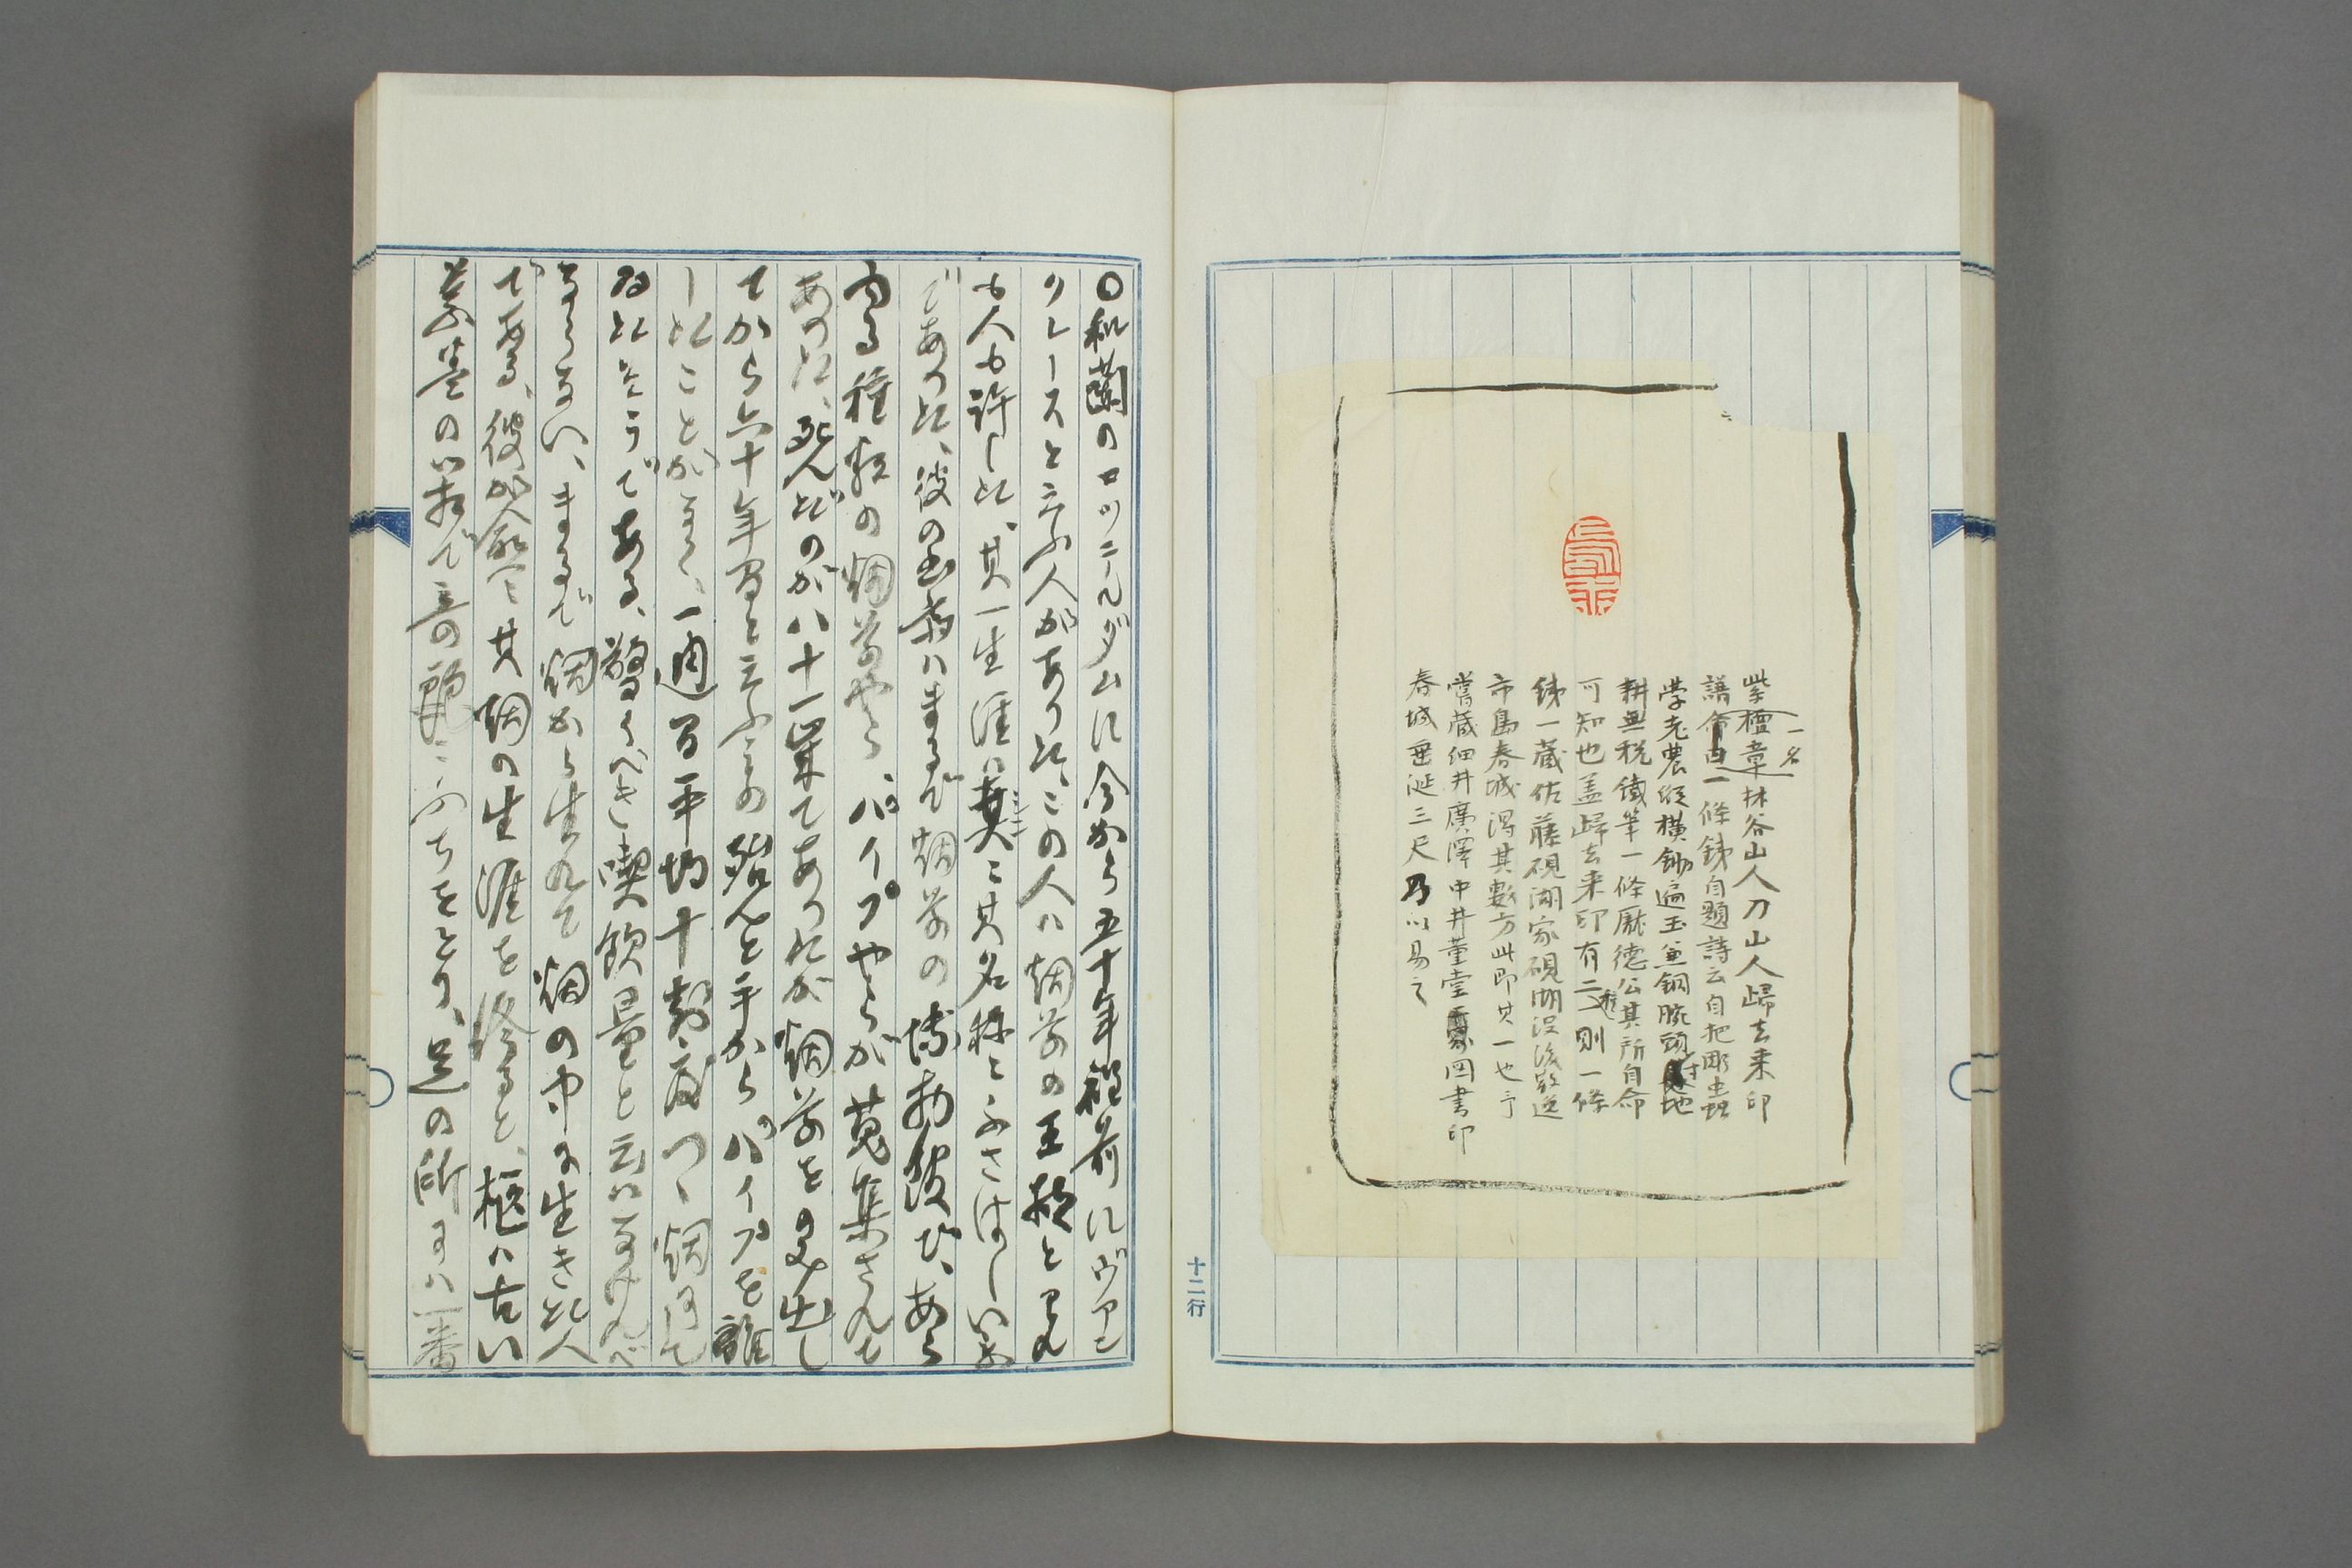 一名
紫檀章林谷山人刀山人歸去来印
譜命曰一條銕自題詩云自把彫虫
学老農縦横鋤遍玉兼銅腕頭寸地
耕無税鐵筆一條厭德公其所自命
可知也盖歸去来印有二種則一條
銕一蔵佐藤硯湖家硯湖没後散逸
市島春城得其數方此即其一也予
嘗蔵細井廣澤中井董堂図書印
春城垂涎三尺乃以易之
十二行
〇和蘭のロツニールダムに今から五十年程前にヴアン
クレースと云ふ人があつた、この人ハ烟草の王様と
も人も許した、其一生涯ハ真に其名称にふさはしいもの
であつた、彼の書斎ハまるで烟草の博物館で、あら
ゆる種類の烟草やら、パイプやらが蒐集されて
あつた、死んだのが八十一歳であつたが烟草をのみ出し
てから六十年間と云ふもの殆んと手からパイプを離
したことがなく、一週間平均十斤づつ烟にして
ゐたさうである、驚くべき喫飲量と云ハなけれバ
ならない、まるで烟から生れて烟の中に生きた人
である、彼が愈々其烟の生涯を終ると、柩ハ古い
葉巻の箱で の ふちをとり、足の所にハ一番